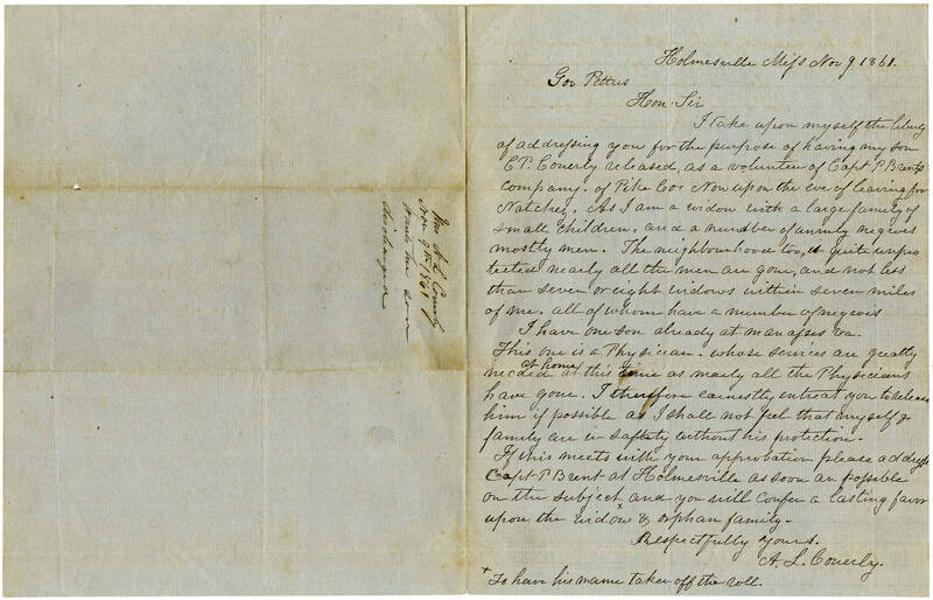 Holmesville Miss Nov 9 1861.
Gov Pettus
Hon. Sir
I take upon myself the liberty
of addressing you for the purpose of having my son
C P. Coverly released, as a volunteer of Capt P Brents
company. of Pike Co: Now upon the eve of leaving for
Natchez. As I am a widow with a large family of
small children. and a number of unruly negroes
mostly men. The neighbourhood too, is quite unpro
tected nearly all the men are gone, and not less
than seven or eight widows within seven miles
of me. all of whom have a number of negroes
I have one son already at Manasses Va.
This one is a Physician. whose services are greatly
needed at home at this time as nearly all the Physicians
have gone. I therefore earnestly entreat you to release
him if possible as I shall not feel that myself &
family are in safety without his protection.
If this meets with your approbation please address
Capt P Brent at Holmesville as soon as possible
on the subject and you will confer a lasting favor
upon the widow & orphan family.
Respectfully yours.
A. L. Coverly.
+ To have his name taken off the roll.
Mrs A L Coverly
Nov 9th 1861
wants her son
discharged